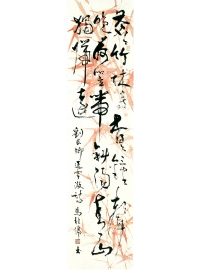 蒼蒼竹林寺杳杳鐘聲
晚荷笠帶斜陽青山
獨歸遠
劉長卿送靈澈詩